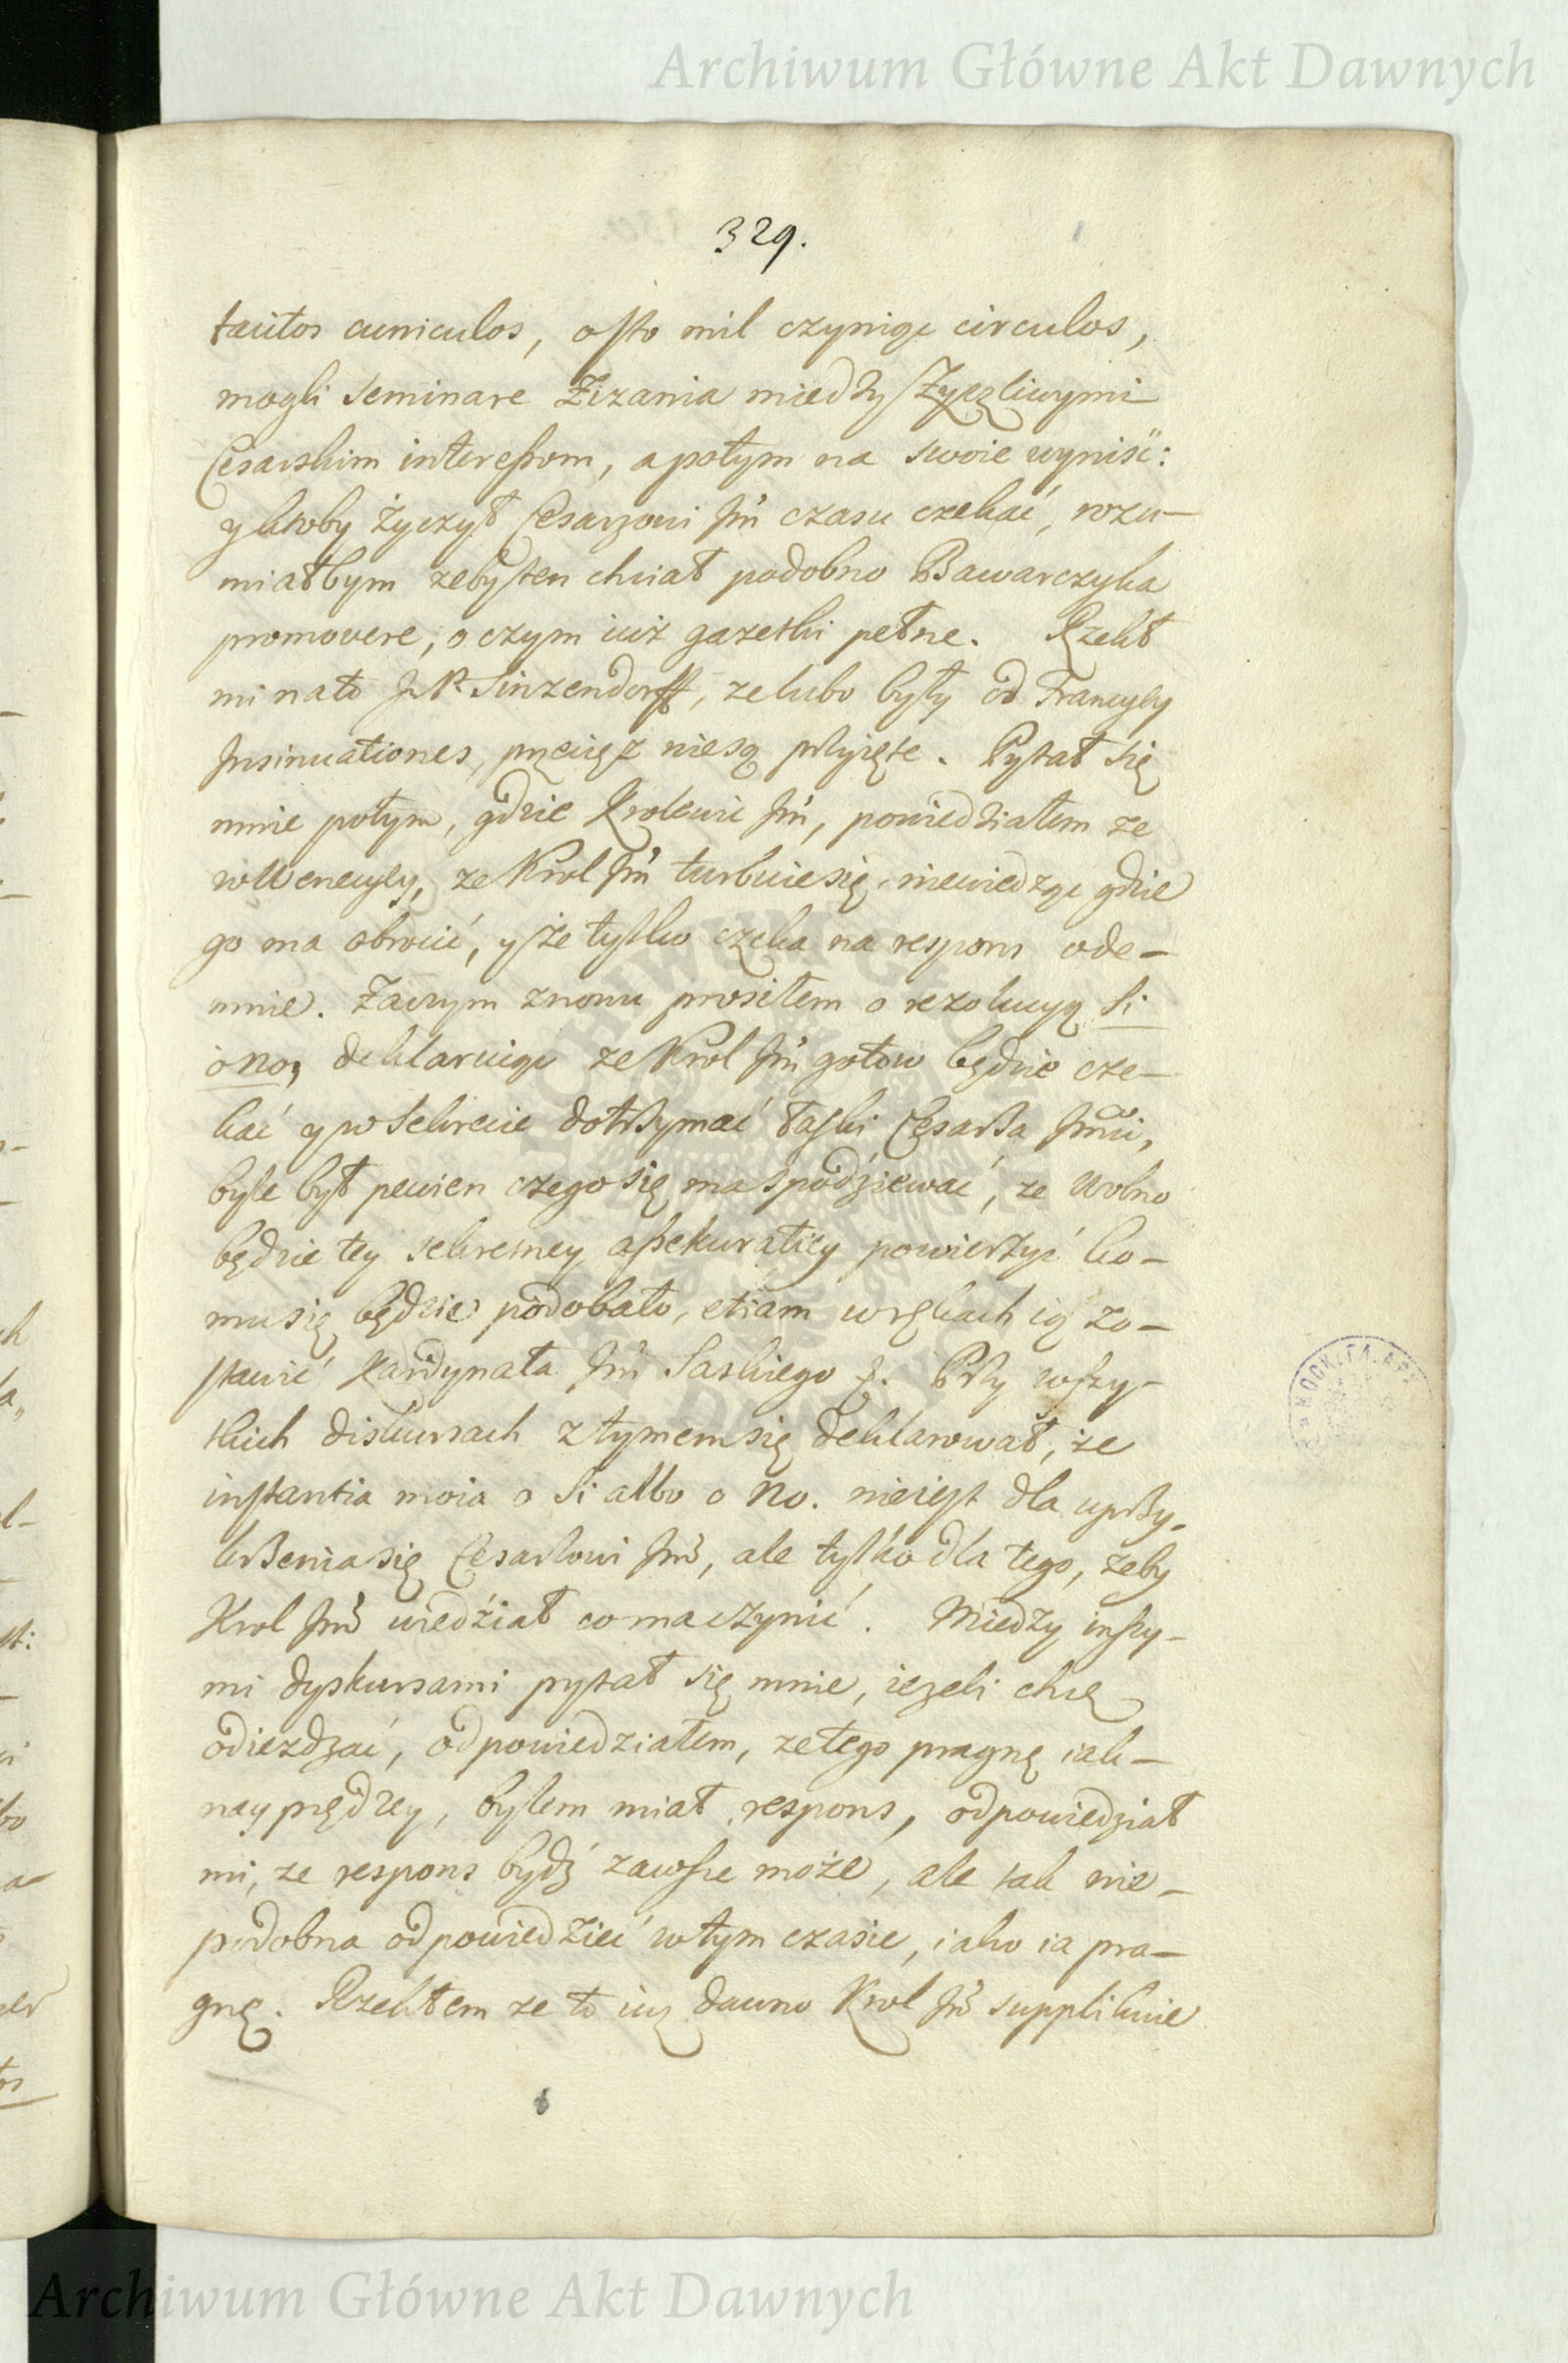 Archiwum Główne Akt Dawnych
329.
tacitos cuniculos, o sto mil czyniąc circulos,
mogli seminare Zizania miedzy Zyczliwymi
Cesarskim interessom, a potym na swoie wyniść:
y ktoby życzył Cesarzowi Jm̃ czasu czekać, rozu-
miałbym zeby ten chciał podobno Bawarczyka
promovere, o czym iuż gazetki pełne. Rzekł
mi nato Sinzendorff, ze lubo były od Francyey
Insinuationes, przecięż niesą przyięte. Pytał się
mnie potym, gdzie Krolewic Jm̃, powiedziałem ze
w Wenecyey, ze Krol Jm̃ turbuie się, niewiedząc gdzie
go ma obrocić, y że tylko czeka na respons ode-
mnie. Zaczym znowu prosiłem o rezolucyą Si
o no, deklaruiąc ze Krol Jm̃ gotow będzie cze-
kać y w sekrecie dotrzymać łaski Cesarza Jmći,
byle był pewien czego się ma spodziewać, ze wolno
będzie tey sekretney assekuratiey powierzyć ko-
mu się będzie podobało, etiam w rękach ią zo-
stawić Kardynała Jm̃ Saskiego &. Przy wszy-
stkich diskursach z tymem się deklarował, że
instantia moia o Si albo o No. nieiest dla uprzy-
krzenia się Cesarzowi Jm̃, ale tylko dla tego, żeby
Krol Jm̃ wiedział co ma czynić. Miedzy inszy-
mi dyskursami pytał się mnie, ieżeli chcę
odiezdzać, odpowiedziałem, ze tego pragnę iak-
nayprędzey, bylem miał respons, odpowiedział
mi, ze respons bydź zawsze może, ale tak nie-
podobna odpowiedzieć w tym czasie, iako ia pra-
gnę. Rzekłem ze to iuż dawno Krol Jm̃ supplikuie
Archiwum Główne Akt Dawnych